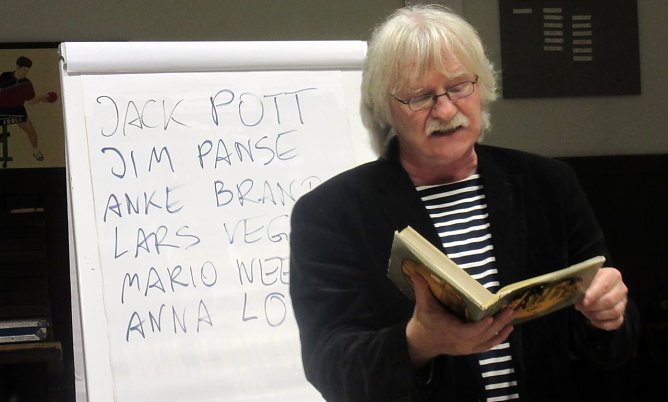 JACK POTT
JIM PANSE
ANKE BRAND
LARS VEG
MARIO NEE
ANNA LO